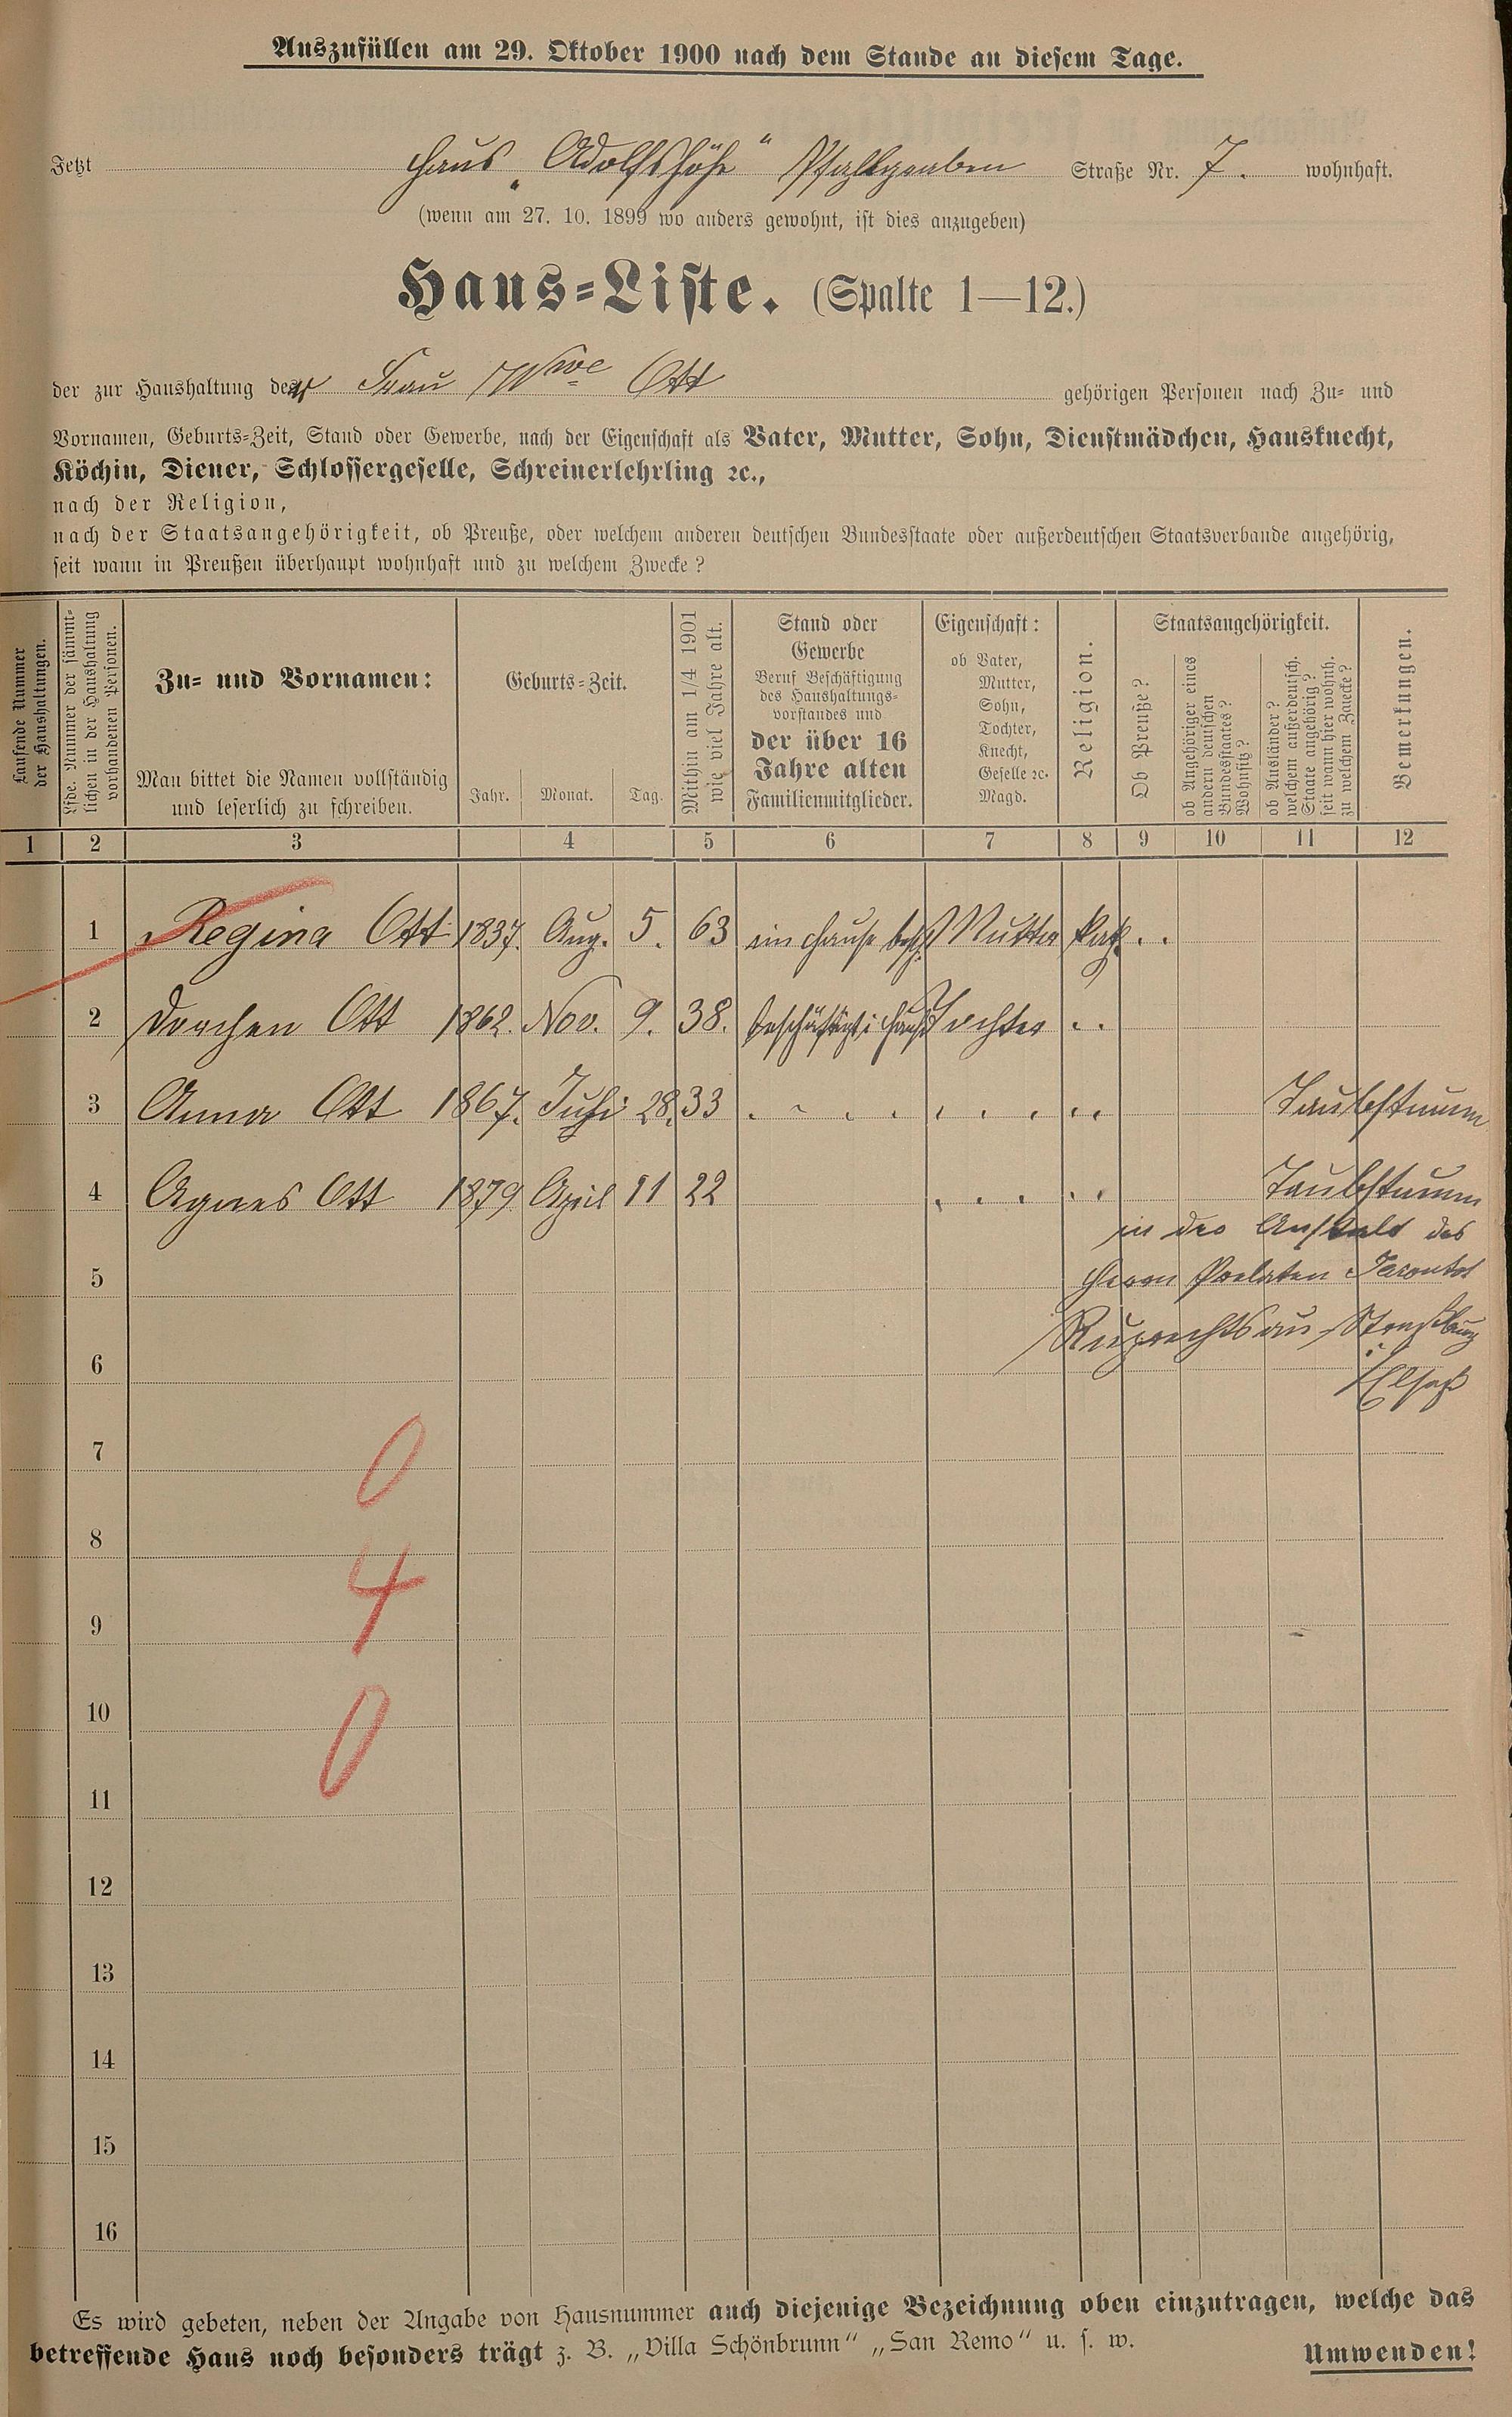 Auszufüllen am 29. Oktober 1900 nach dem Stande an diesem Tage.
Jetzt Haus „Adolfshöhe“ Pfahlgraben Straße Nr. 7. wohnhaft.
(wenn am 27. 10. 1899 wo anders gewohnt, ist dies anzugeben)
Haus=Liste. (Spalte 1—12.)
der zur Haushaltung der Frau Wwe Ott gehörigen Personen nach Zu= und
Vornamen, Geburts=Zeit, Stand oder Gewerbe, nach der Eigenschaft als Vater, Mutter, Sohn, Dienstmädchen, Hausknecht,
Köchin, Diener, Schlossergeselle, Schreinerlehrling ꝛc.,
nach der Religion,
nach der Staatsangehörigkeit, ob Preuße, oder welchem anderen deutschen Bundesstaate oder außerdeutschen Staatsverbande angehörig,
seit wann in Preußen überhaupt wohnhaft und zu welchem Zwecke?
Laufende Nummer
der Haushaltungen.
Lfde. Nummer der sämmt=
lichen in der Haushaltung
vorhandenen Personen.
Zu= und Vornamen:
Man bittet die Namen vollständig
und leserlich zu schreiben.
Geburts=Zeit.
Jahr. Monat. Tag.
Mithin am 1/4 1901
wie viel Jahre alt.
Stand oder
Gewerbe
Beruf Beschäftigung
des Haushaltungs=
vorstandes und
der über 16
Jahre alten
Familienmitglieder.
Eigenschaft:
ob Vater,
Mutter,
Sohn,
Tochter,
Knecht,
Geselle ꝛc.
Magd.
Religion.
Staatsangehörigkeit.
Ob Preuße?
ob Angehöriger eines
andern deutschen
Bundesstaates?
Wohnsitz?
ob Ausländer?
welchem außerdeutsch.
Staate angehörig?
seit wann hier wohnh.
zu welchem Zwecke?
Bemerkungen.
1 2 3 4 5 6 7 8 9 10 11 12
1 Regina Ott 1837. Aug. 5. 63 im Hause besch. Mutter kath. . .
2 Dorchen Ott 1862. Nov. 9. 38. beschäftigt i. Hause Tochter . .
3 Anna Ott 1867. Juli 28. 33 . . . . . . . . . Taubstumm
4 Agnes Ott 1879 April 11 22 . . . . . Taubstumm
in der Anstalt des
5 Herrn Prelaten
Ruprechtsau Straßburg
6 i/Elsaß
7
0
8
4
9
10
0
11
12
13
14
15
16
Es wird gebeten, neben der Angabe von Hausnummer auch diejenige Bezeichnung oben einzutragen, welche das
betreffende Haus noch besonders trägt z. B. „Villa Schönbrunn“ „San Remo“ u. s. w.
Umwenden!